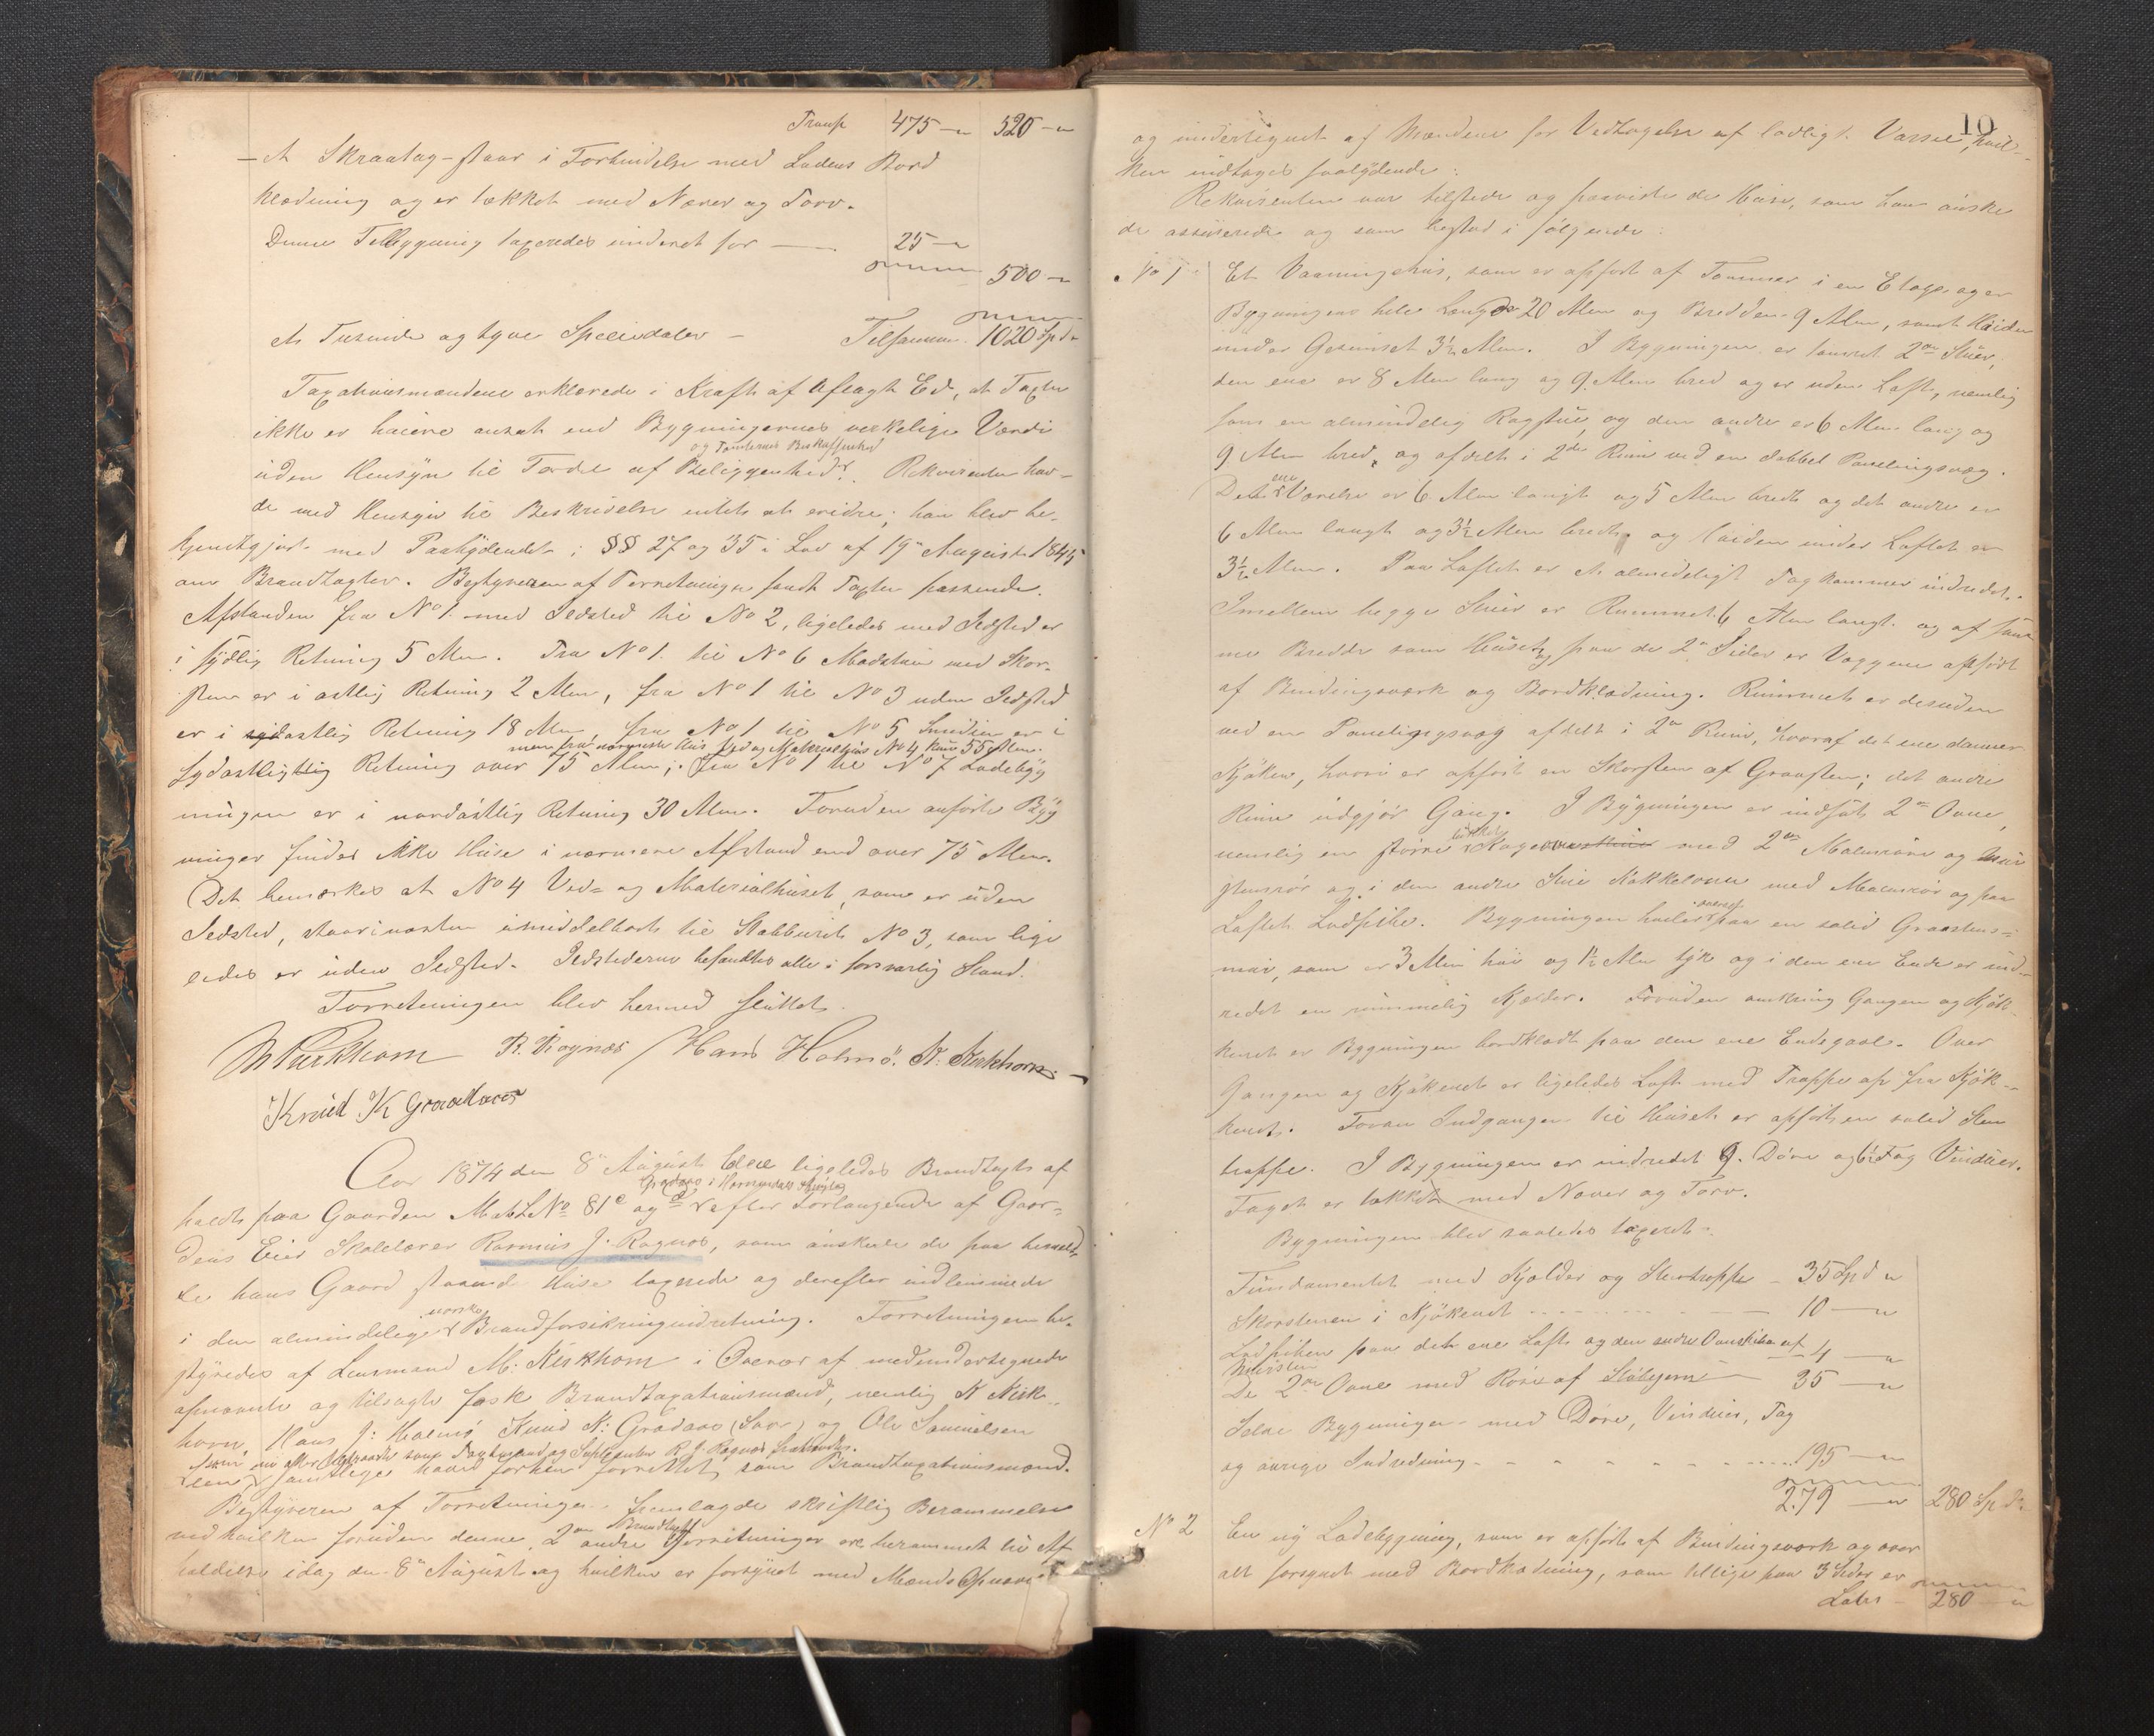 Transp 475 — " 520 — "
— et Skraatag staar i Forbindelse med Ladens Bord
klædning og er tækket med Næver og Torv.
Denne Tilbygning taxeredes inderet for — 25 — "
500 — "
et Tusinde og tyve Speciedaler — Tilsammen 1020 Spd "
Taxationsmændene erklærede i Kraft af aflagt Ed, at Taxten
ikke er høiere ansat end Bygningernes virkelige Værdi
og Tomternes Beskaffenhed
uden Hensyn til Fordel af Beliggenhed. Rekvirenten hav-
de med Hensyn til Beskrivelsen intet at erindre; han blev be-
kjendtgjort med Paalydendet i §§ 27 og 35 i Lov af 19de August 1845
om Brandtaxter. Bestyreren af Forretningen fandt Taxten passende.
Afstanden fra No 1 med Ildsted til No 2, ligeledes med Ildsted er
i sydlig Retning 5 Alen. Fra No 1 til No 6 Madstue med Skor-
sten er i østlig Retning 2 Alen, fra No 1 til No 3 uden Ildsted
er i sydøstlig Retning 18 Alen fra No 1 til No 5 Smidien er i
men fra nærmeste Hus Ved og Materialhus No 4 kun 55 Alen.
Sydøstlig Retning over 75 Alen; fra No 1 til No 7 Ladebyg
ningen er i nordøstlig Retning 30 Alen. Foruden anførte Byg
ninger findes ikke Huse i nærmere Afstand end over 75 Alen.
Det bemærkes at No 4 Ved- og Materialhuset, som er uden
Ildsted, staar næsten umiddelbart til Stabburet No 3, som lige
ledes er uden Ildsted. Ildstederne befandtes alle i forsvarlig Stand.
Forretningen blev hermed sluttet.
M Kirkhorn R. Rognæs Hans Holmø. K. Kirkhorn
Knud K Graadaas
Aar 1874 den 8de August blev ligeledes Brandtaxt af
holdt paa Gaarden Matr L No 81c og d efter Forlangende af Gaar-
dens Eier Skolelærer Rasmus J. Rognæs, som ønskede de paa bemeld-
te hans Gaard staaende Huse taxerede og derefter indlemmede
norske
i den almindelige Brandforsikringsindretning. Forretningen be-
styredes af Lensmand M. Kirkhorn i Overvær af medundertegnede
opnævnte og tilsagte faste Brandtaxationsmænd, nemlig K Kirk-
horn, Hans J. Holmø Knud K. Gradaas og Ole Samuelsen
som Taxtmand og Suppleanten R. J. Rognæs
Leen, samtlige have forhen forrettet som Brandtaxationsmænd.
Bestyreren af Forretningen fremlagde skriftlig Berammelse
Brandtaxt
ved hvilken foruden denne, 2de andre forretninger ere berammet til Af
holdelse idag den 8de August og hvilken er forsynet med Mænds Opnævn
10
og undertegnet af Mændene for Vedtagelse af lovligt Varsel, hvil-
ken indtages saalydende:
Rekvirenten var tilstede og paaviste de Huse, som han ønske
de assurerede og som bestod i følgende:
No 1 Et Vaaningshus, som er opført af Tømmer i en Etage og er
Bygningens hele Længde 20 Alen og Bredden 9 Alen, samt Høiden
under Gesimset 3½ Alen. I Bygningen er tømret 2de Stuer,
den ene er 8 Alen lang og 9 Alen bred og er uden Loft, nemlig
som en almindelig Røgstue, og den anden er 6 Alen lang og
9 Alen bred, og afdelt i 2de Rum ved en dobbel Panelingsvæg.
ene
Det Værelse er 6 Alen langt og 5 Alen bredt og det andre er
6 Alen langt og 3½ Alen bredt, og høiden under Loftet er
3½ Alen. Paa Loftet er et almindeligt Tagkammer indredet.
Imellem begge Stuer er Rummet 6 Alen langt og af sam
me Bredde som Huset, og paa de 2de Sider er Væggene opført
af Bindingsværk og Bordklædning. Rummet er desuden
ved en Panelingsvæg afdelt i 2de Rum, hvoraf det ene danner
Kjøken, hvori er opført en Skorsten af Graasten; det andre
Rum udgjør Gang. I Bygningen er indsat 2de Ovne,
nemlig en større med 2de Malmrør og Mur
stensrør og i den anden Stue Kakkelovn med Malmrør og paa
Loftet Lodpibe. Bygningen hviler overalt paa en solid Graastens-
mur, som er 3 Alen høi og 1½ Alen tyk og i den ene Ende er ind-
redet en rummelig Kjælder. Foruden omkring Gangen og Kjøk
kenet er Bygningen bordklædt paa den ene Endegavl. Over
Gangen og Kjøkenet er ligeledes Loft med Trappe op fra Kjøk-
kenet. Foran Indgangen til Huset er opført en solid Sten
trappe. I Bygningen er indredet 9 Døre og 6½ Fag Vinduer.
Taget er tækket med Næver og Torv.
Bygningen blev saaledes taxeret:
Fundamentet med Kjælder og Stentrappe — 35 Spd "
Skorstenen i Kjøkenet — 10 — "
Lodpiben paa det ene Loft og den andre Ovnspibe af
Mursten — 4 — "
De 2de Ovne med Rør af Støbejern — 35 — "
Selve Bygningen med Døre, Vinduer, Tag
og øvrige Indredning — 195 — "
279 — " 280 Spd "
No 2 En ny Ladebygning, som er opført af Bindingsværk og over
alt forsynet med Bordklædning, som tillige paa 3 Sider er
Lates — 280 — "